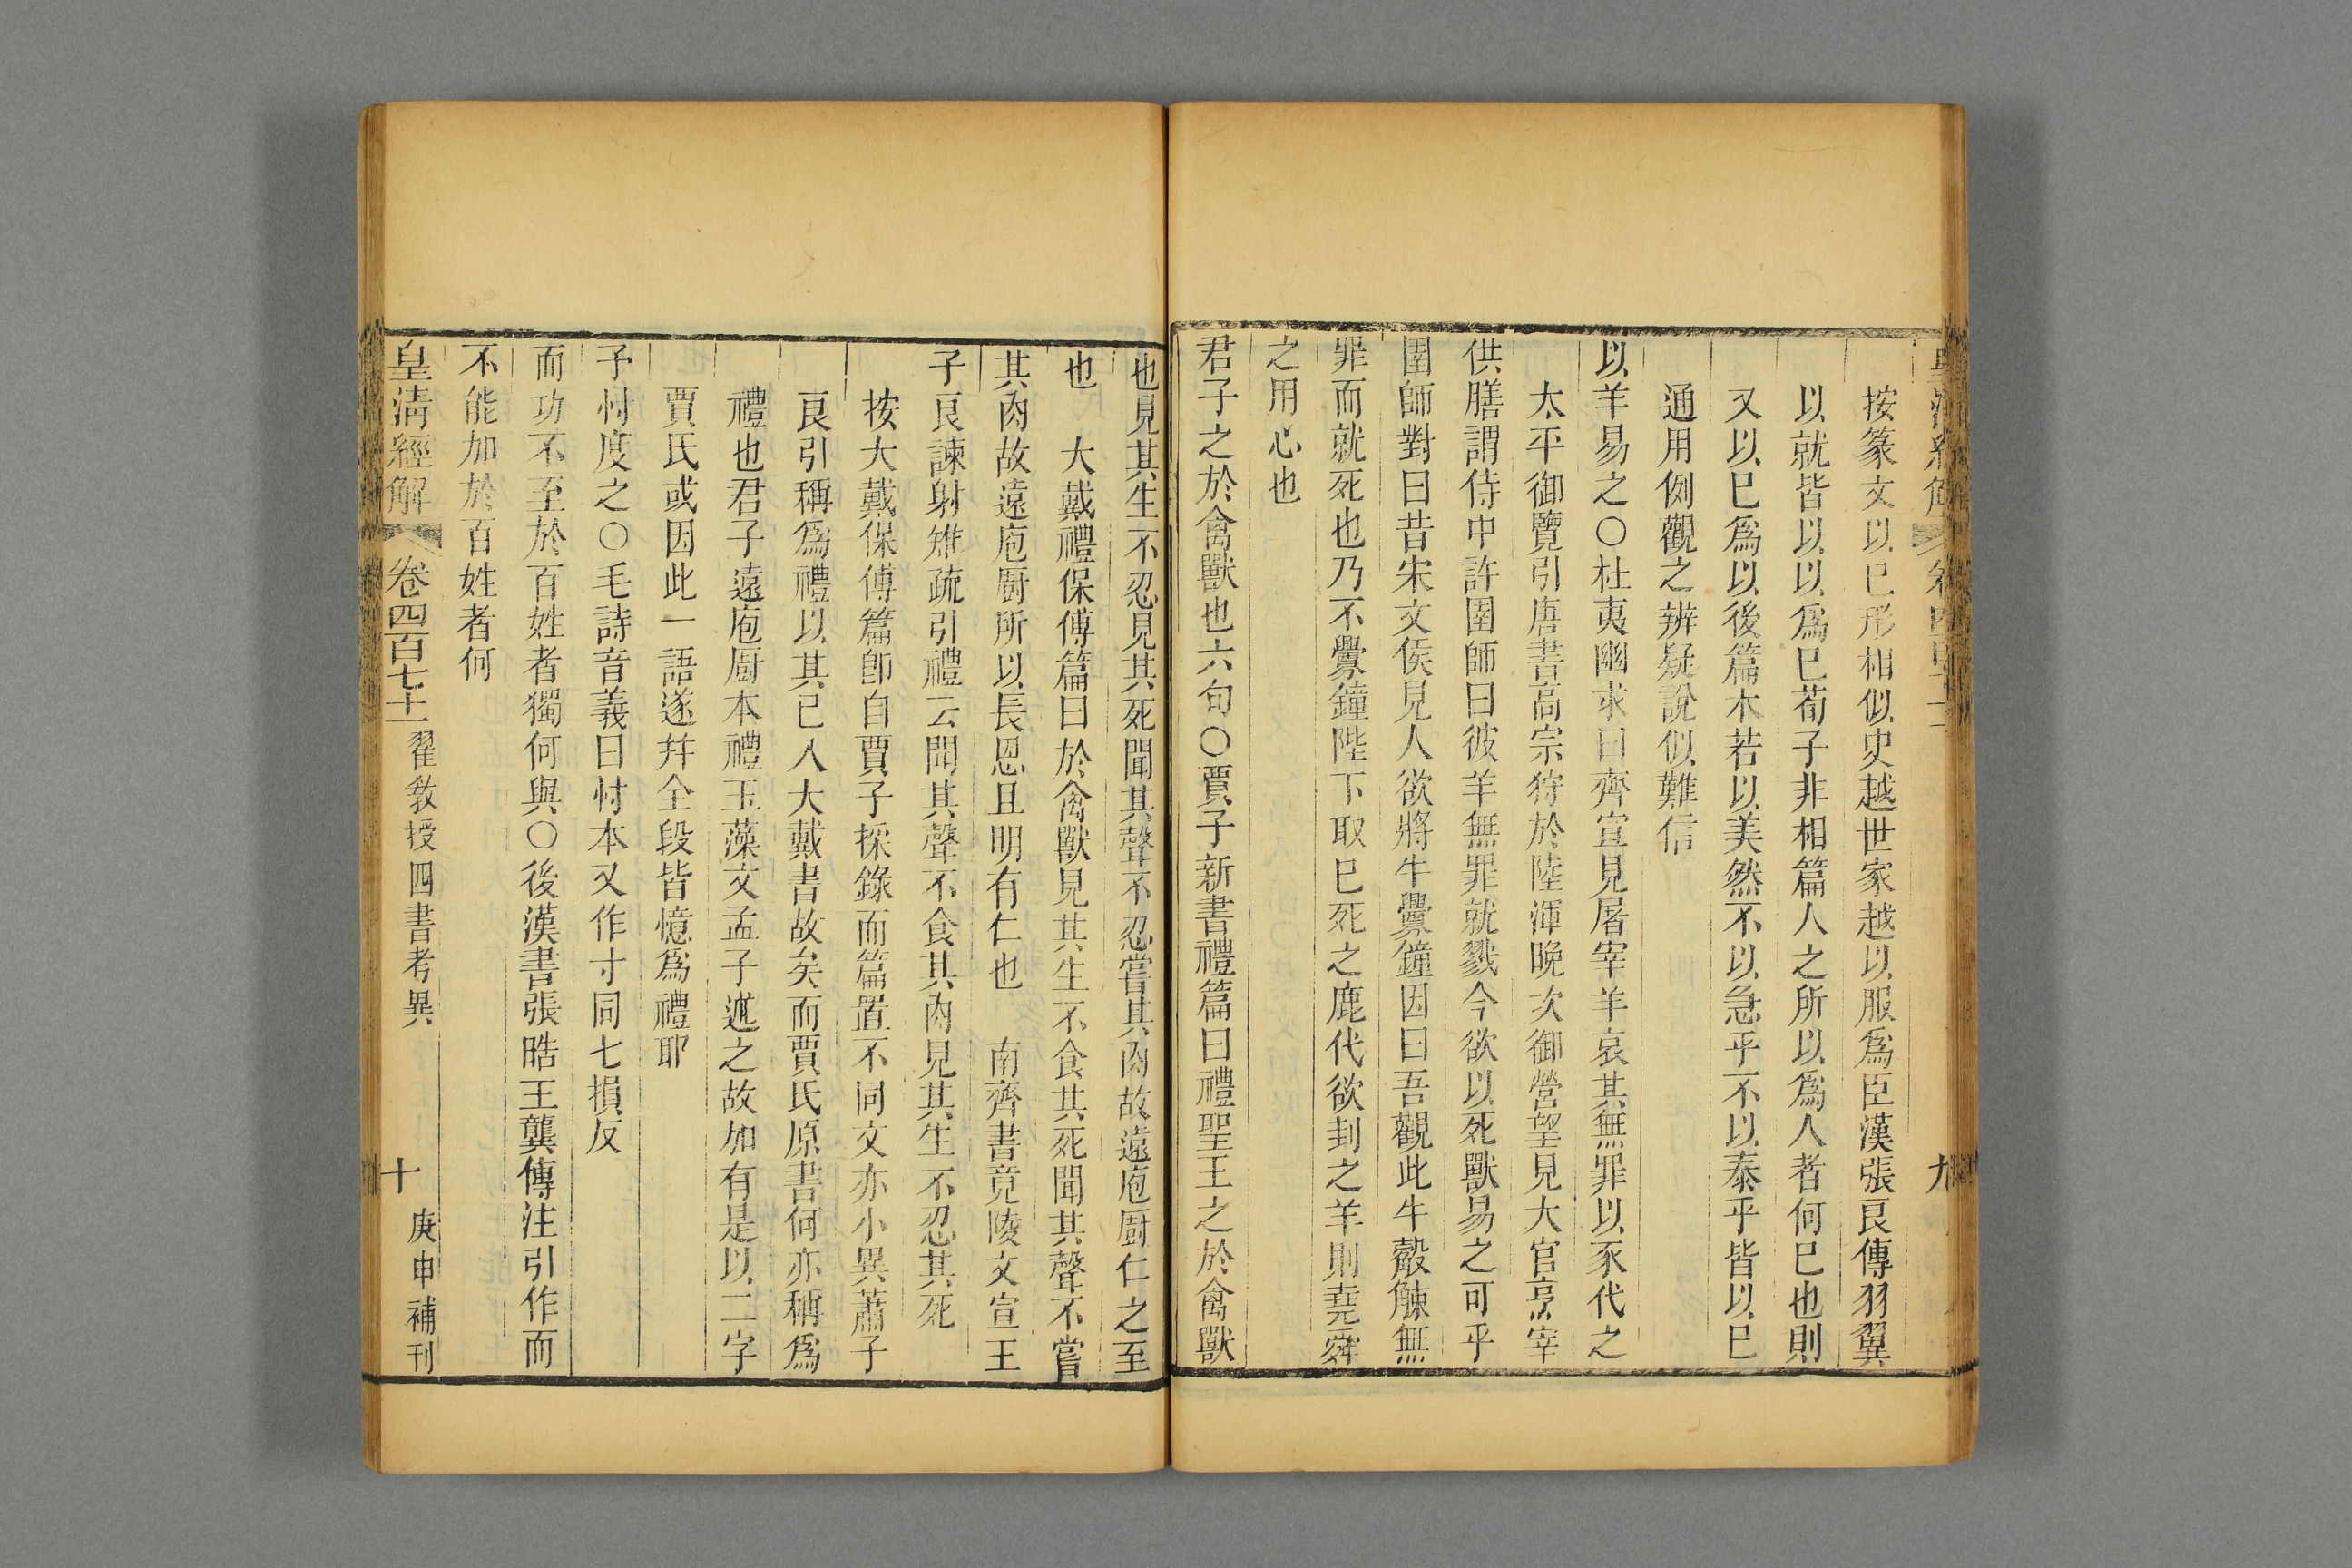 按篆文以已形相似史越世家越以服爲臣漢張良傳羽翼
以就皆以以爲已荀子非相篇人之所以爲人者何已也則
又以已爲以後篇木若以美然不以急乎不以泰乎皆以已
通用例觀之辨疑說似難信
以羊易之〇杜夷幽求曰齊宣見屠宰羊哀其無罪以豕代之
太平御覽引唐書高宗狩於陸渾晚次御營望見大官烹宰
供膳謂侍中許圉師曰彼羊無罪就戮今欲以死獸易之可乎
圉師對曰昔宋文侯見人欲將牛釁鐘因曰吾觀此牛觳觫無
罪而就死也乃不釁鐘陛下取已死之鹿代欲刲之羊則堯舜
之用心也
君子之於禽獸也六句〇賈子新書禮篇曰禮聖王之於禽獸
也見其生不忍見其死聞其聲不忍嘗其肉故遠庖廚仁之至
也　大戴禮保傅篇曰於禽獸見其生不食其死聞其聲不嘗
其肉故遠庖廚所以長恩且明有仁也　南齊書竟陵文宣王
子良諫射雉疏引禮云聞其聲不食其肉見其生不忍其死
按大戴保傅篇卽自賈子採錄而篇置不同文亦小異蕭子
良引稱爲禮以其已入大戴書故矣而賈氏原書何亦稱爲
禮也君子遠庖廚本禮玉藻文孟子述之故加有是以二字
賈氏或因此一語遂幷全段皆憶爲禮耶
予忖度之〇毛詩音義曰忖本又作寸同七損反
而功不至於百姓者獨何與〇後漢書張晧王龔傳注引作而
不能加於百姓者何
皇清經解　卷四百七十二　翟敎授四書考異　十　庚申補刊